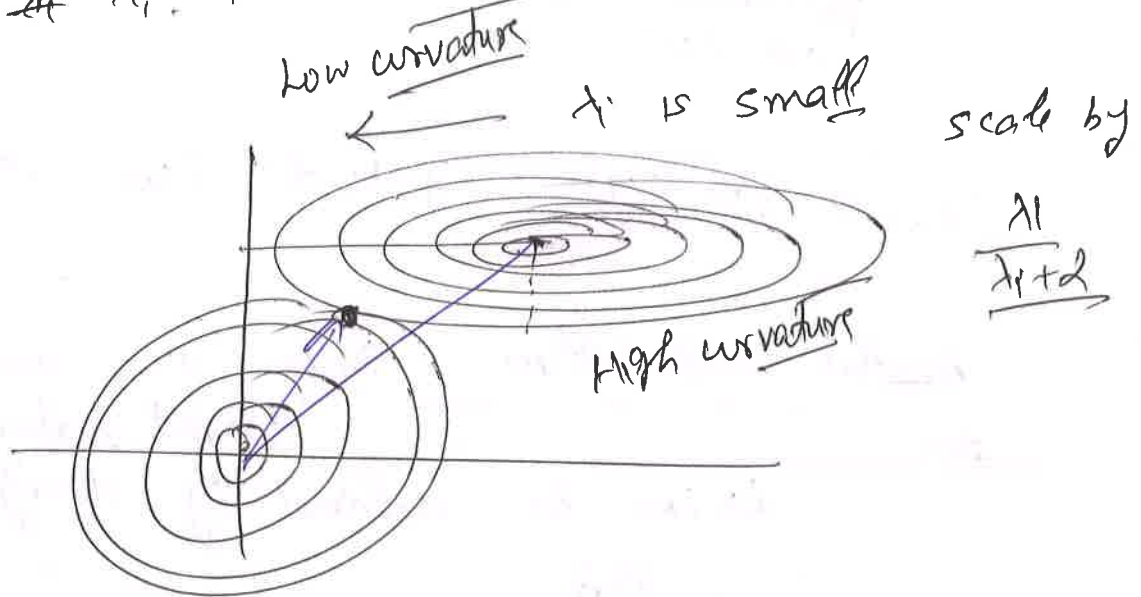 Low curvature
λi is small
scale by
λ1
λi + α
High curvature